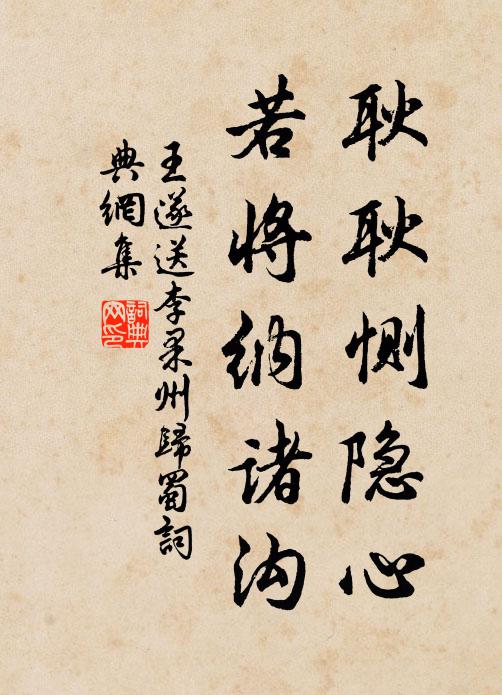 耿耿恻隐心
若将纳诸沟
王遂送李果州歸蜀詞
典網集
詞典网印